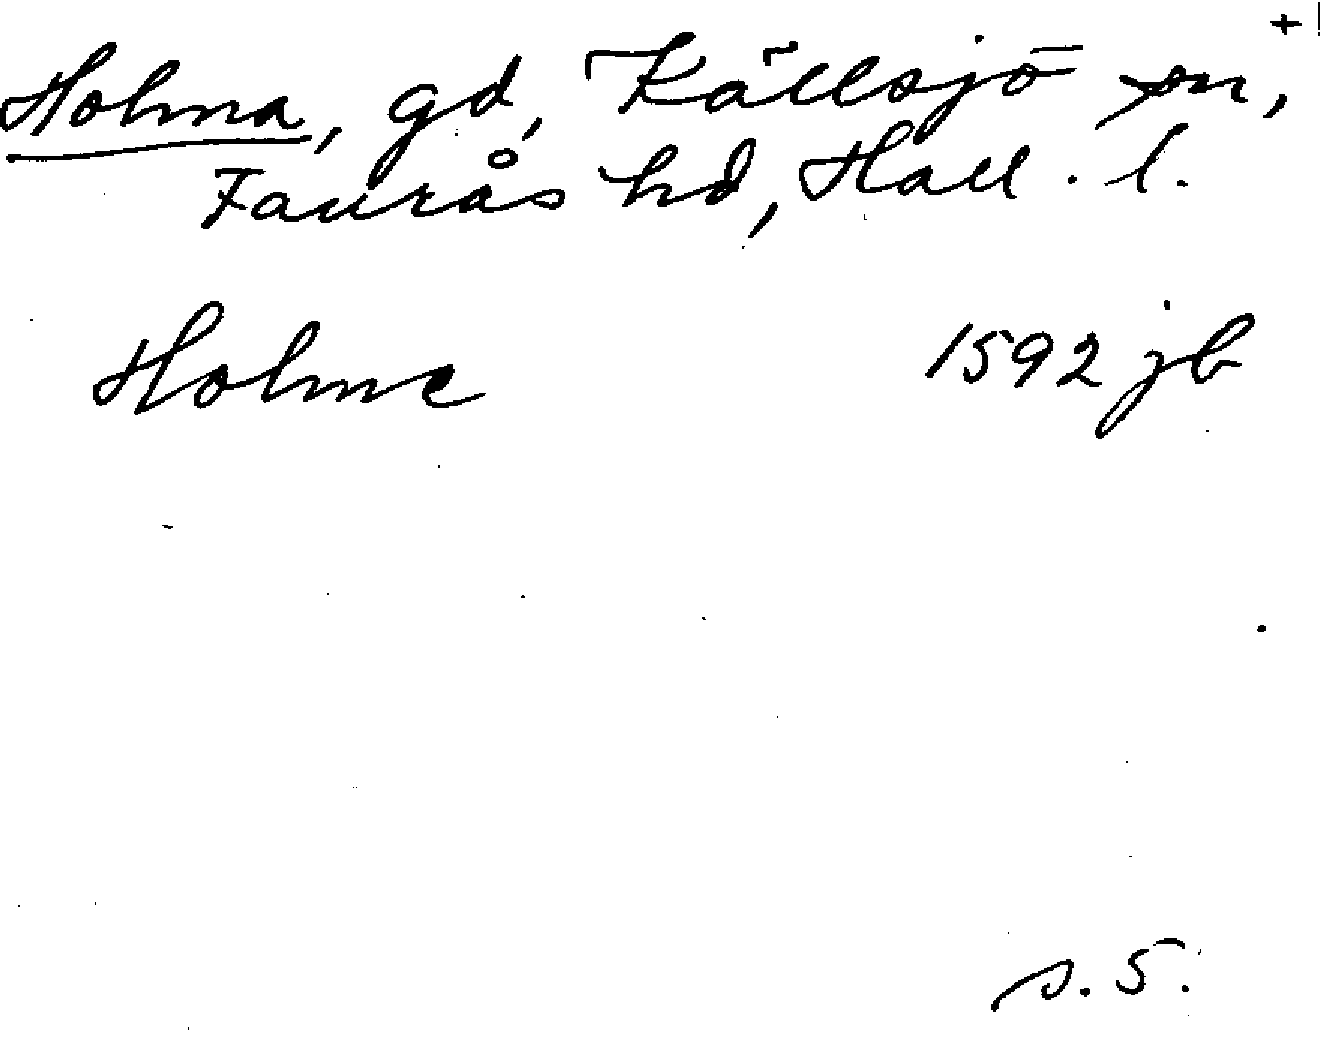 +
Holma, gd, Källsjö sn,
Faurås hd, Hall. l.
Holme 1592 jb
s. 5.